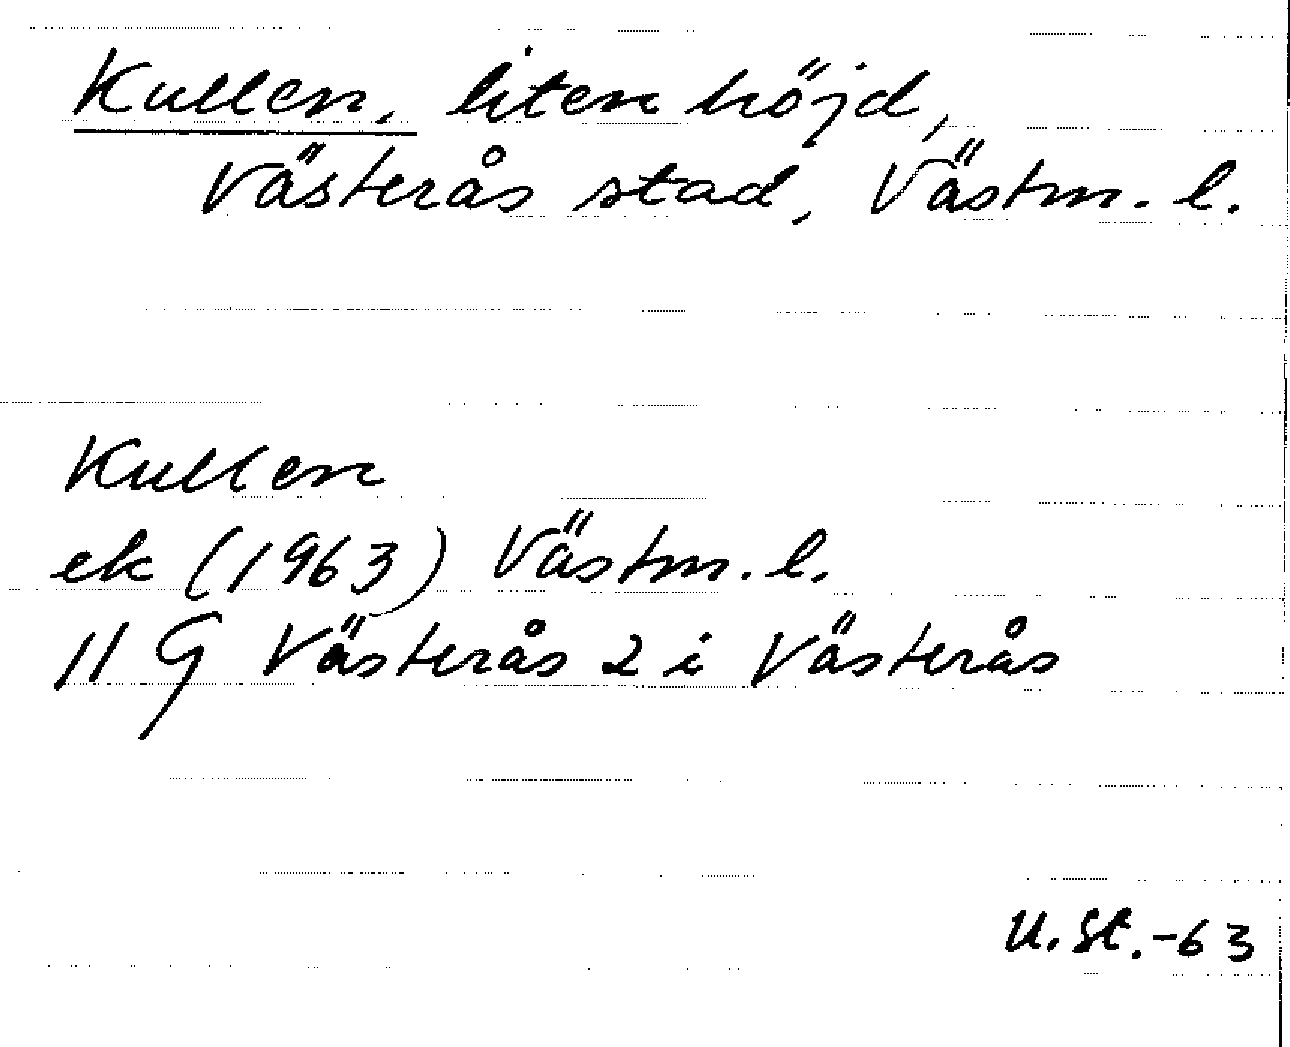 Kullen, liten höjd,
Västerås stad, Västm. l.
Kullen
ek (1963) Västm. l.
11 G Västerås 2 i Västerås
U. St. -63